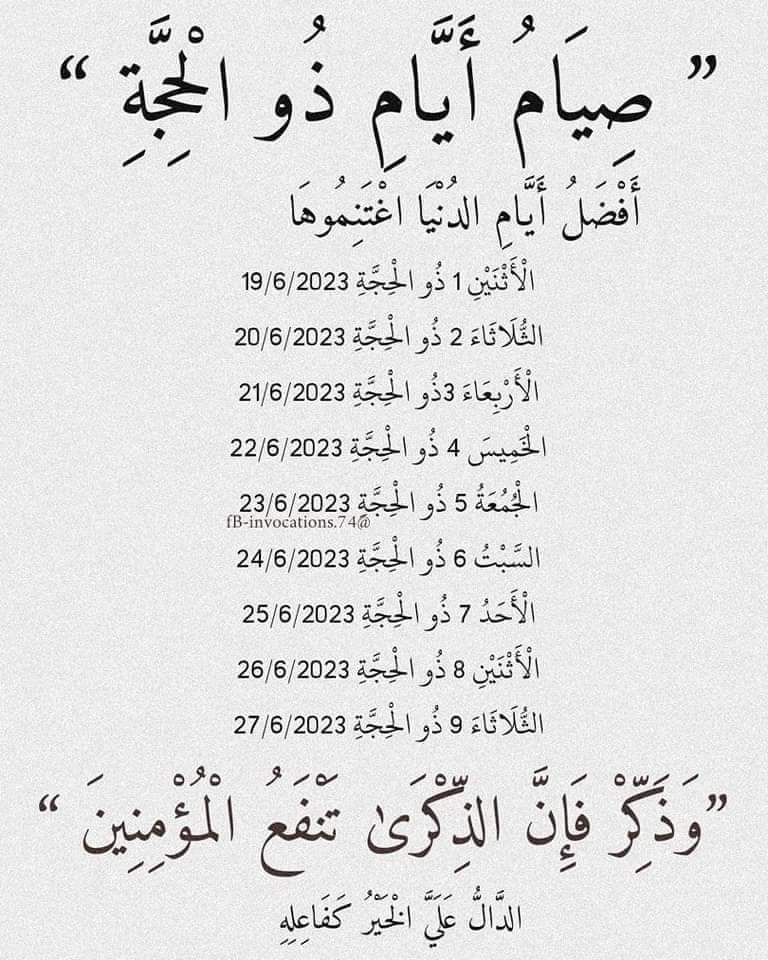 ” صِيَامُ أَيَّامِ ذُو الْحِجَّةِ “
أَفْضَلُ أَيَّامِ الدُنْيَا اغْتَنِمُوهَا
الْأَثْنَيْنِ 1 ذُو الْحِجَّةِ 19/6/2023
الثُّلَاثَاءَ 2 ذُو الْحِجَّةِ 20/6/2023
الْأَرْبِعَاءَ 3ذُو الْحِجَّةِ 21/6/2023
الْخَمِيسَ 4 ذُو الْحِجَّةِ 22/6/2023
الْجُمُعَةُ 5 ذُو الْحِجَّةِ 23/6/2023
fB-invocations.74@
السَّبْتُ 6 ذُو الْحِجَّةِ 24/6/2023
الْأَحَدُ 7 ذُو الْحِجَّةِ 25/6/2023
الْأَثْنَيْنِ 8 ذُو الْحِجَّةِ 26/6/2023
الثُّلَاثَاءَ 9 ذُو الْحِجَّةِ 27/6/2023
”وَذَكِّرْ فَإِنَّ الذِّكْرَىٰ تَنْفَعُ الْمُؤْمِنِينَ “
الدَّالُّ عَلَيَّ الْخَيْرُ كَفَاعِلِهِ